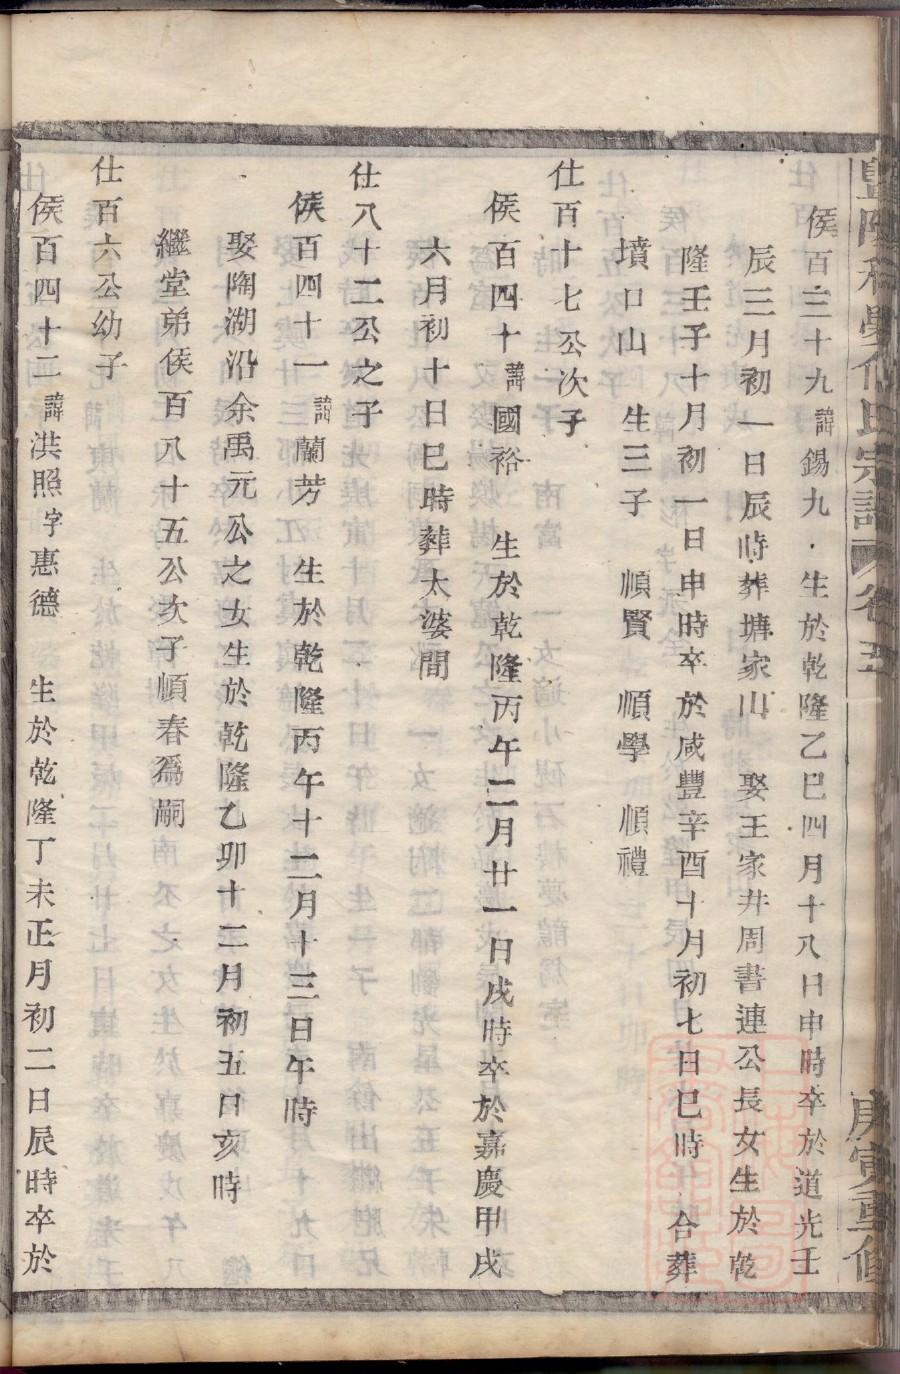 侯百三十九諱錫九　生於乾隆乙巳四月十八日申時卒於道光壬
辰三月初一日辰時葬塘家山　娶王家井周書連公長女生於乾
隆壬子十月初一日申時卒於咸豐辛酉十月初七日巳時　合葬
墳口山　生三子　順賢　順學　順禮
仕百十七公次子
侯百四十諱國裕　生於乾隆丙午二月廿一日戌時卒於嘉慶甲戌
六月初十日巳時葬太婆間
仕八十二公之子
侯百四十一諱蘭芳　生於乾隆丙午十二月十三日午時
娶陶湖沿余禹元公之女生於乾隆乙卯十二月初五日亥時
繼堂弟侯百八十五公次子順春爲嗣
仕百六公幼子
侯百四十二諱洪照字惠德　生於乾隆丁未正月初二日辰時卒於
氏宗譜　卷五　庚寅重修